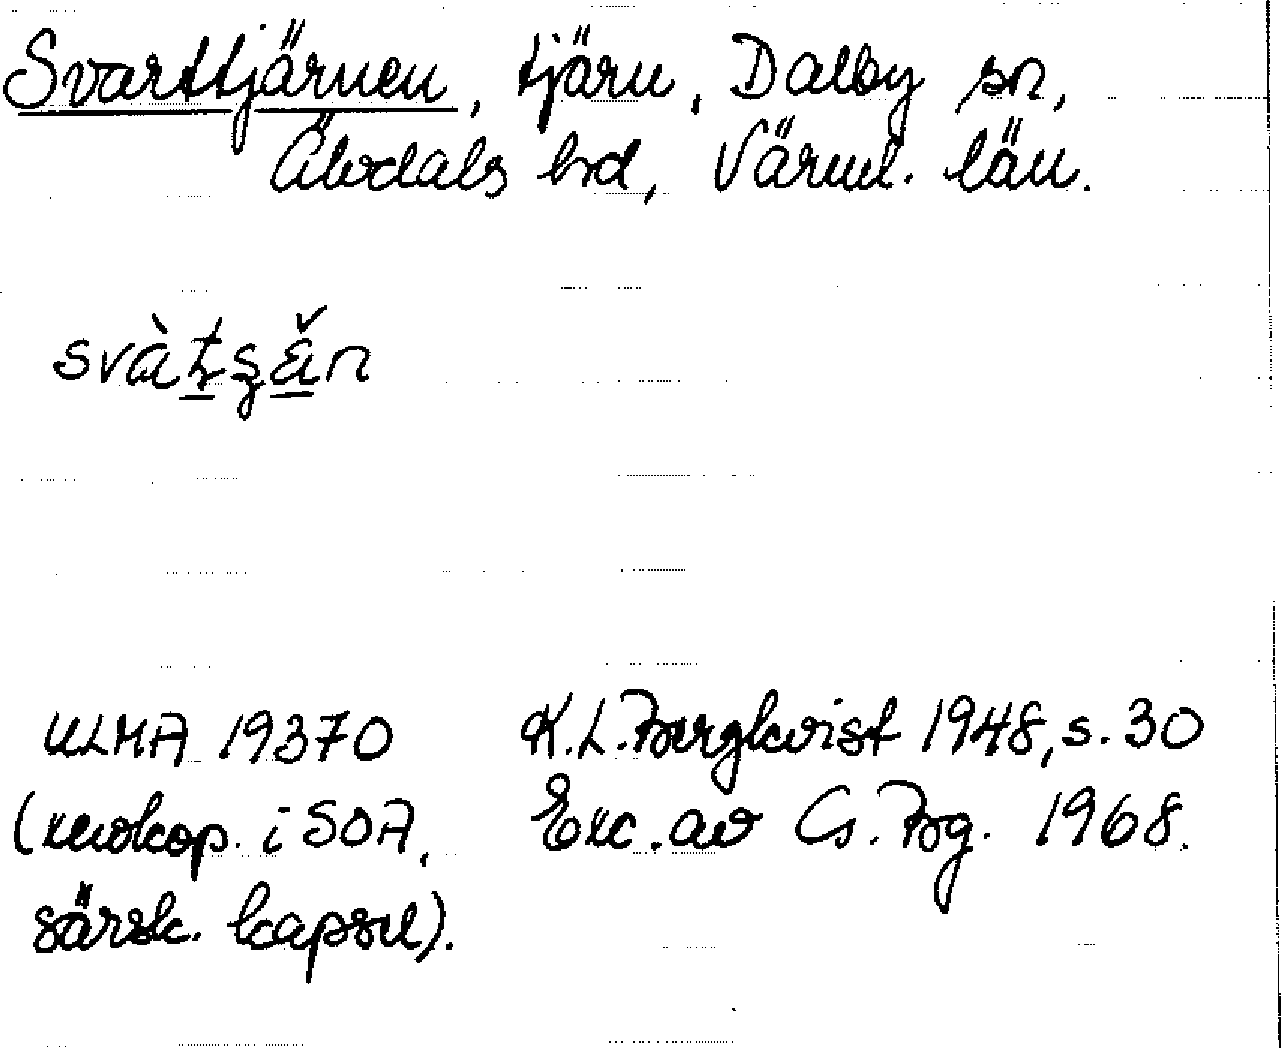 Svarttjärnen, tjärn, Dalby sn,
Älvdals hd, Värml. län.
svàtʂä̌n
ULMA 19370
(xerokop. i SOA,
särsk. kapsel).
K.L. Bergkvist 1948, s. 30
Exc. av G. Bg. 1968.